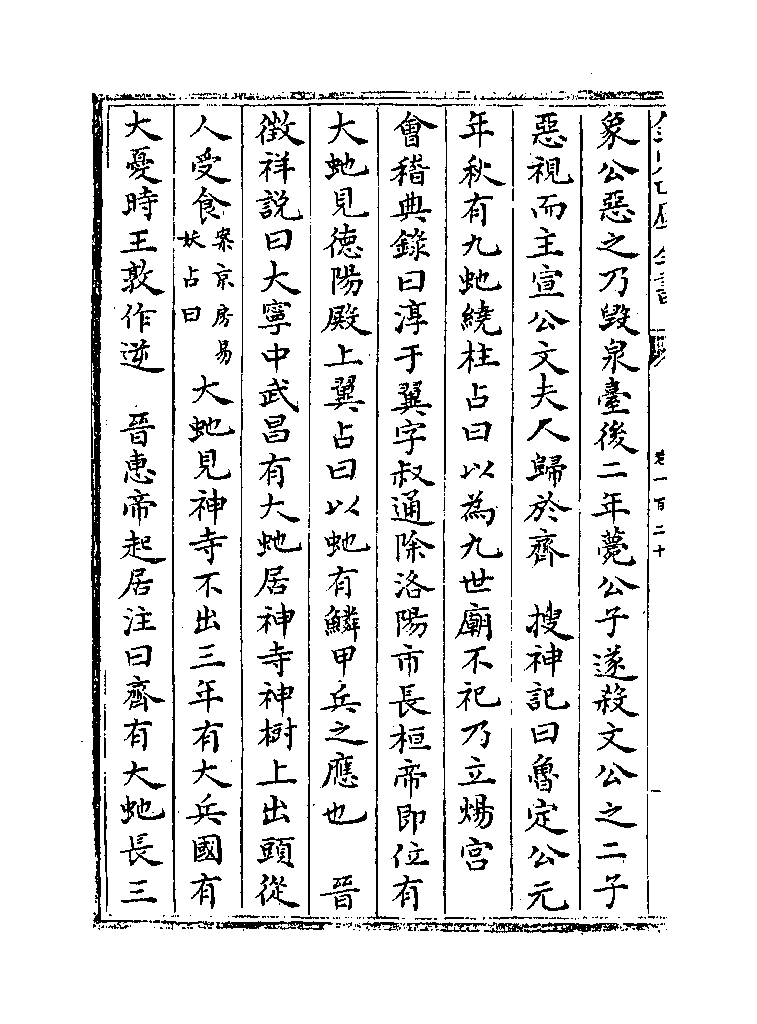 象公惡之乃毀泉臺後二年薨公子遂殺文公之二子
惡視而主宣公文夫人歸於齊　搜神記曰魯定公元
年秋有九虵繞柱占曰以為九世廟不祀乃立煬宮
會稽典錄曰淳于翼字叔通除洛陽市長桓帝即位有
大虵見德陽殿上翼占曰以虵有鱗甲兵之應也　晉
徵祥說曰大寧中武昌有大虵居神寺神樹上出頭從
人受食案京房易妖占曰大虵見神寺不出三年有大兵國有
大憂時王敦作逆　晉惠帝起居注曰齊有大虵長三
卷一百二十